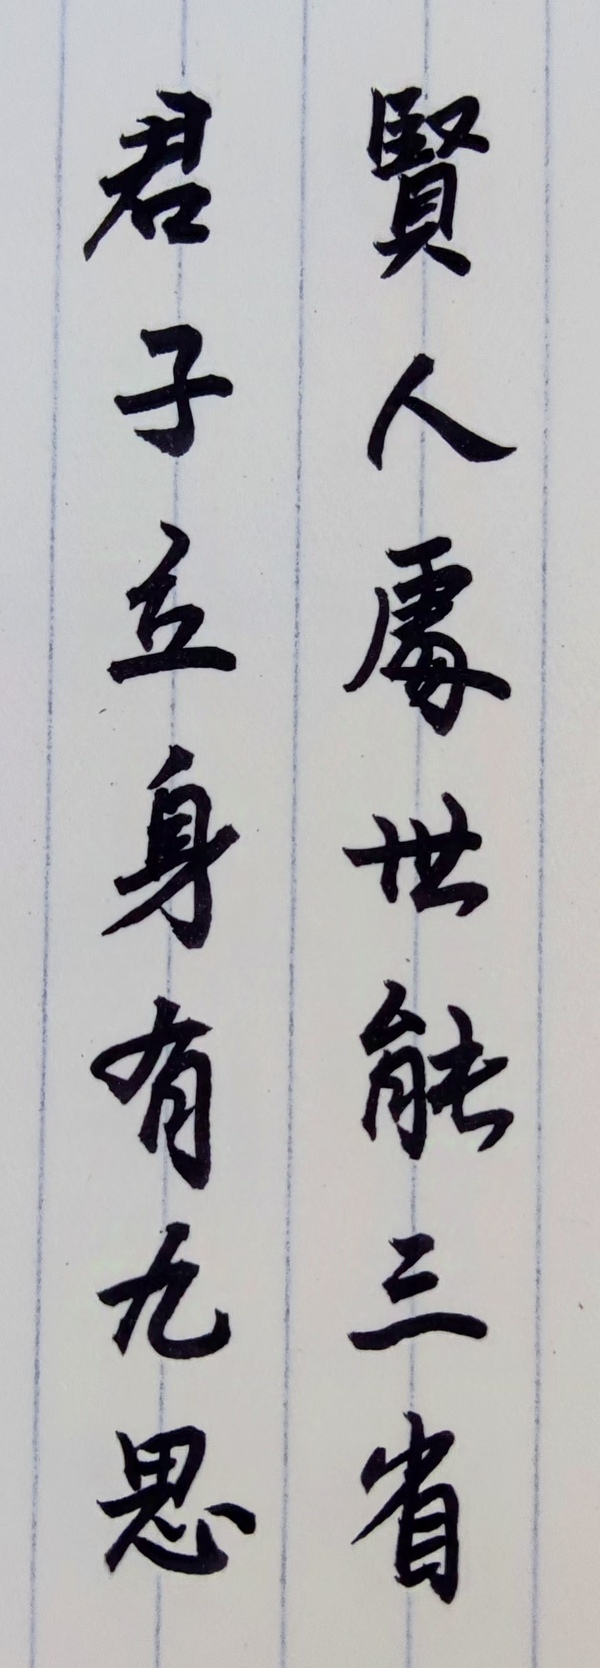 賢人處世能三省
君子立身有九思